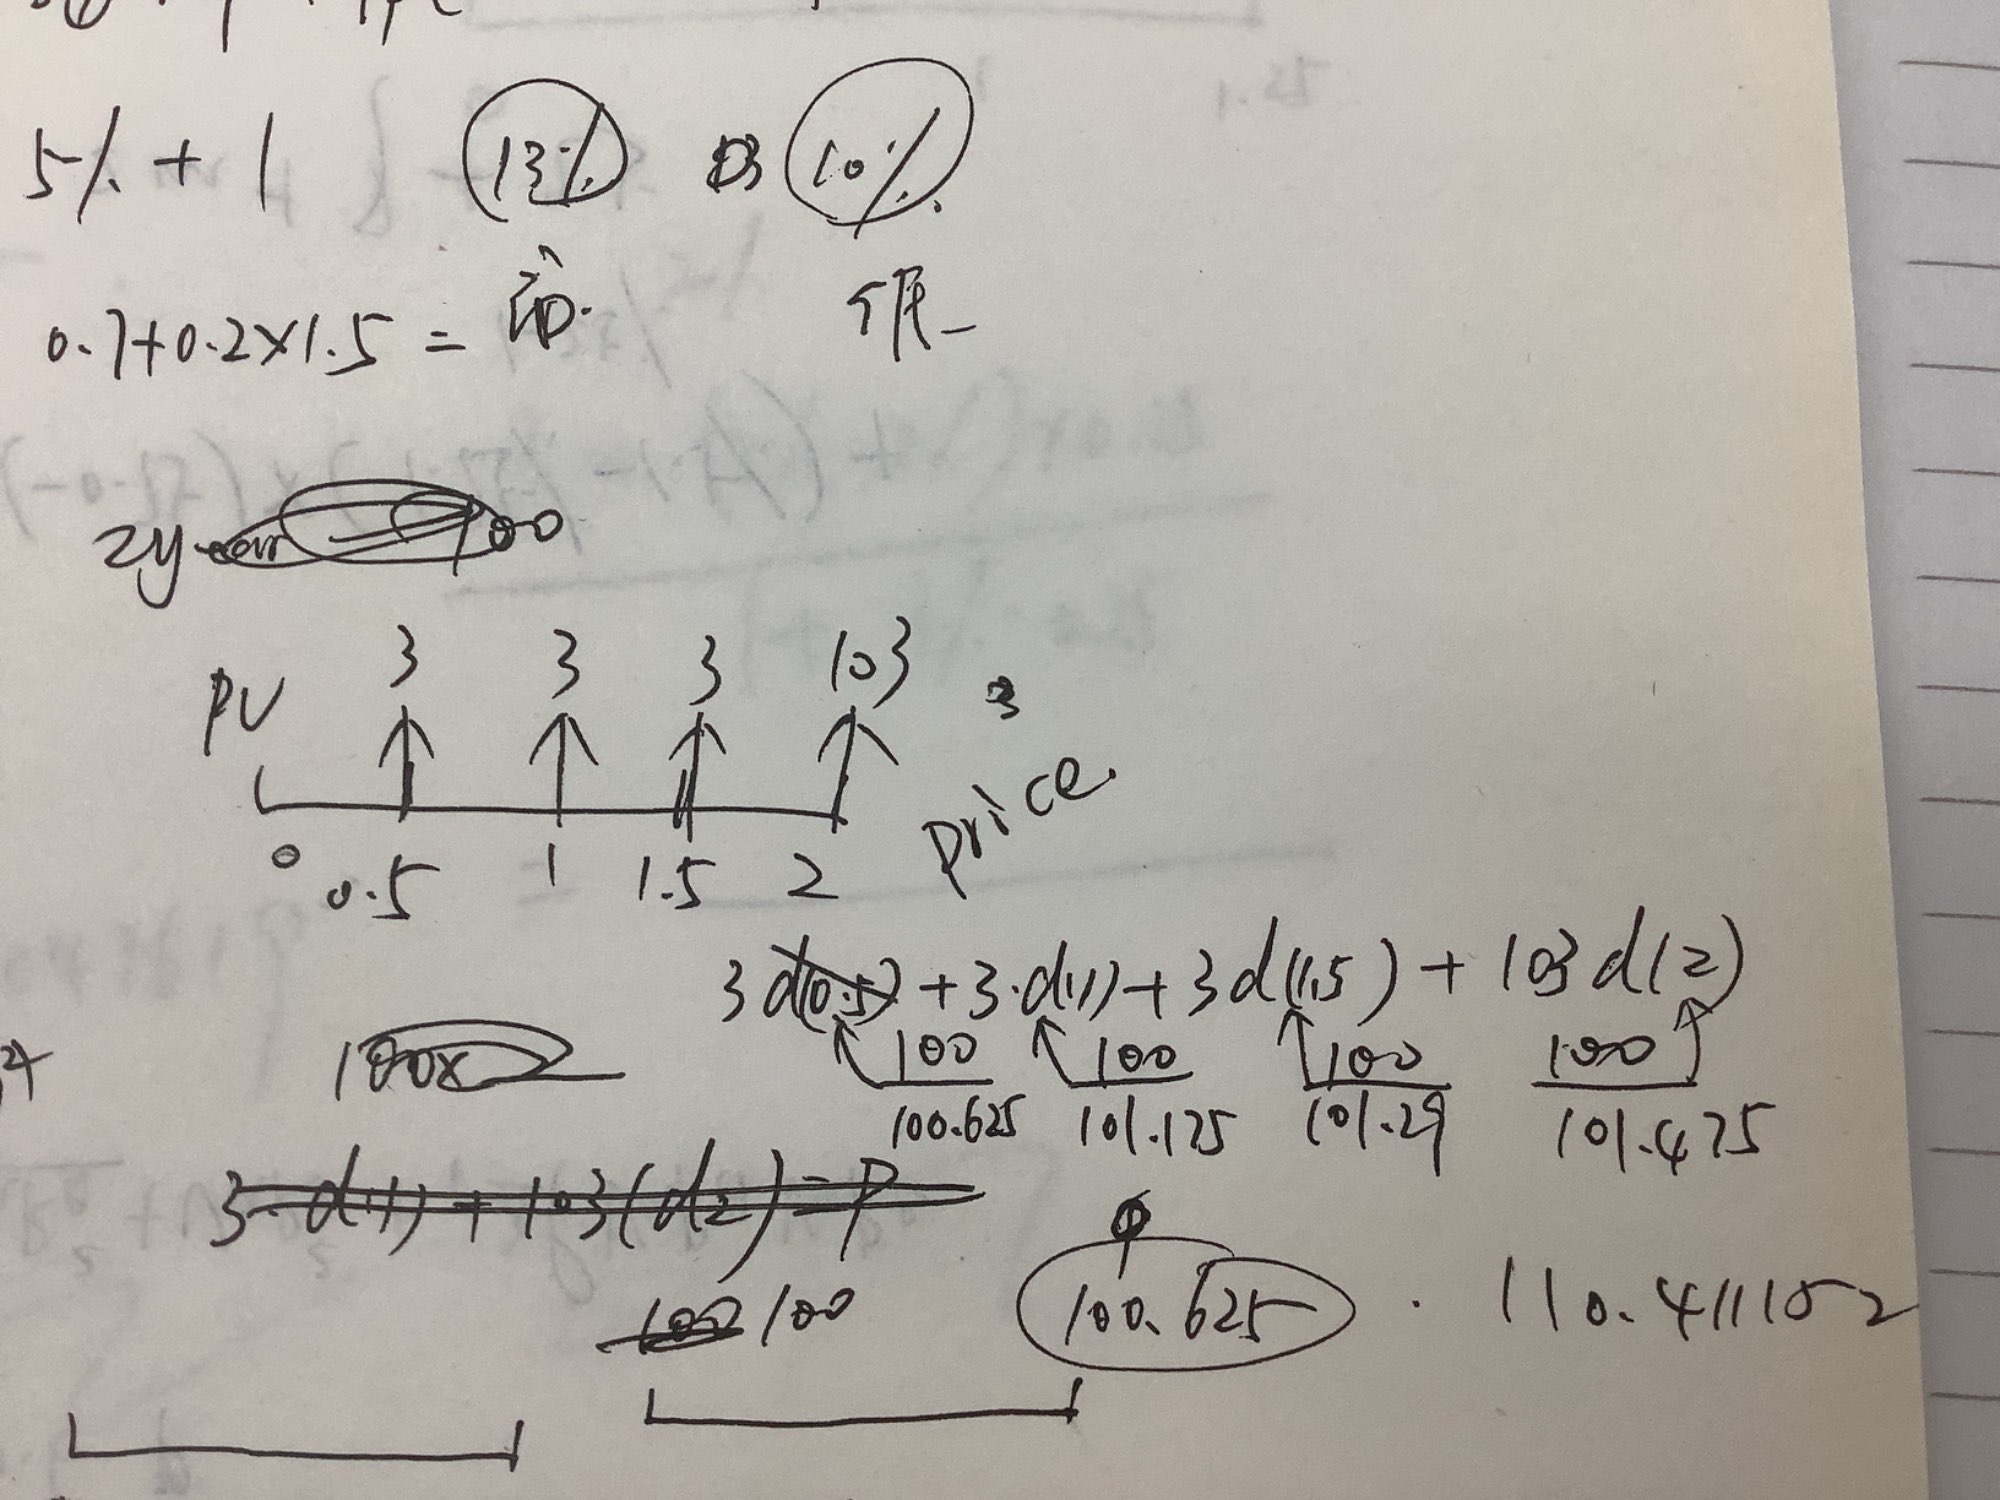 5% + 1 13% 10%
0.7+0.2×1.5 = 印.
2year 100
3 3 3 103 3
PV
0 0.5 1 1.5 2 price.
3d(0.5) + 3·d(1) + 3d(1.5) + 103d(2)
100 100 100 100
100.625 101.175 101.29 101.475
100x
3·d(1) + 103(d2) = P
100 100 100.625 · 110.4111052